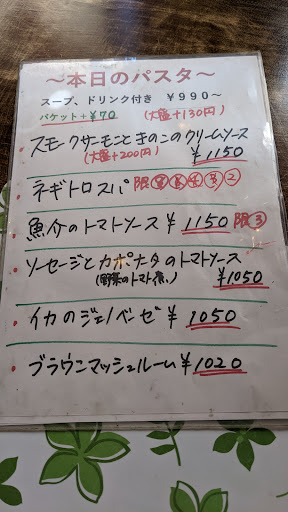 ～本日のパスタ～
スープ、ドリンク付き ￥990～
バケット+¥70 (大盛+130円)
スモークサーモンときのこのクリームソース
(大盛+200円) ¥1150
ネギトロスパ 限
魚介のトマトソース ¥1150 限③
ソーセージとカポナタのトマトソース
(野菜のトマト煮) ¥1050
イカのジェノベーゼ ¥1050
ブラウンマッシュルーム ¥1020